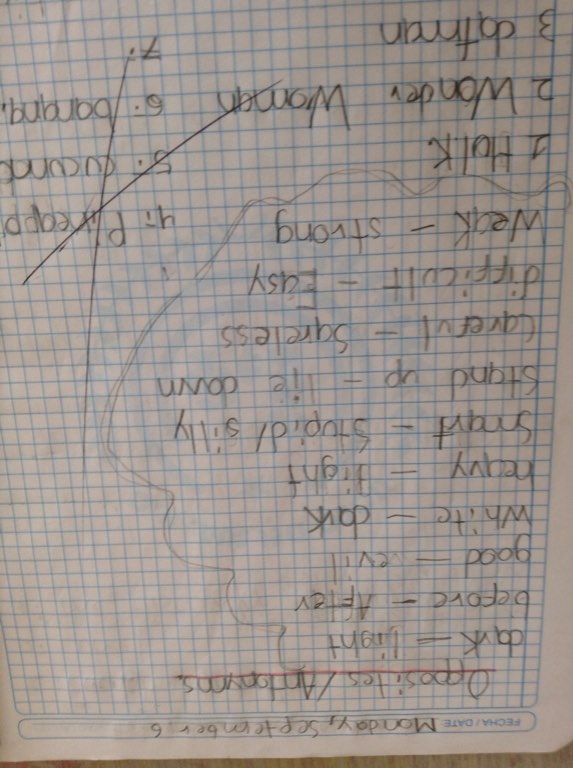 FECHA / DATE Monday, September 6
Opposites / Antonyms.
dark - Light
before - After
good - evil
white - dark
heavy - light
Smart - Stupid / silly
Stand up - lie down
Careful - Sareless
difficult - Easy
Weak - strong
1 Hulk
2 Wonder Woman
3 datman
4:
5:
6:
7: